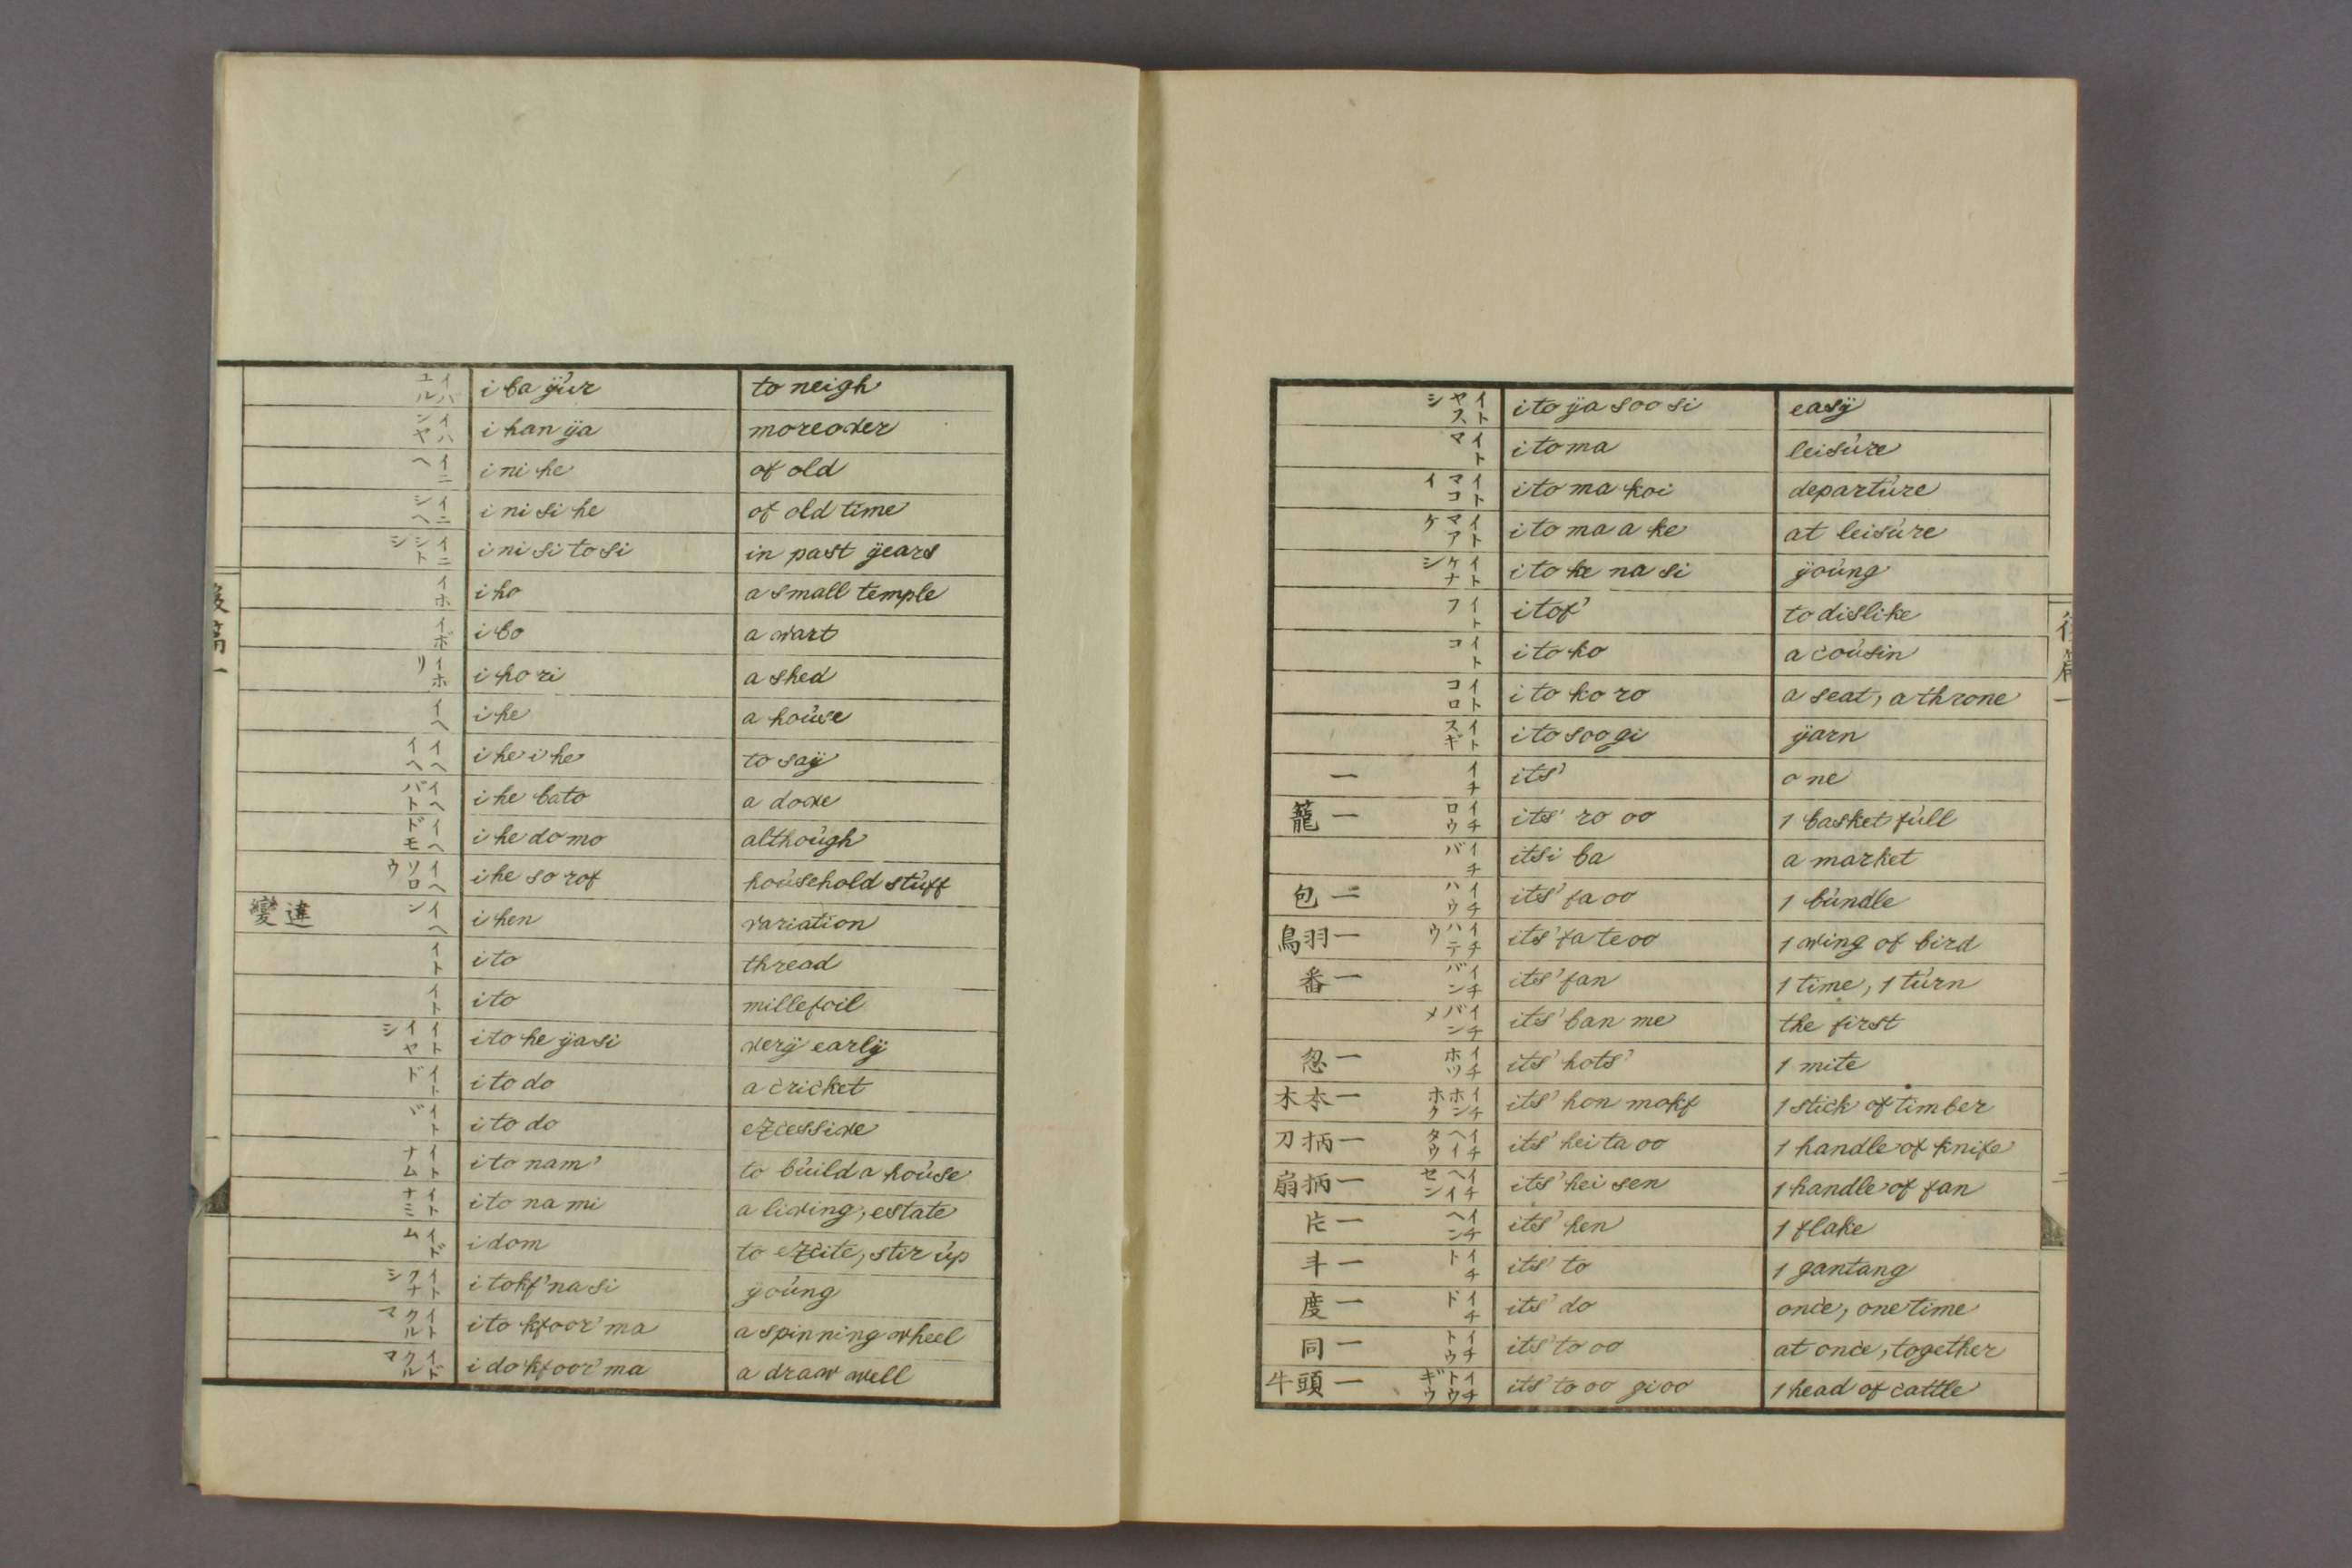 イバユル i ba ÿur to neigh
イハンヤ i han ÿa moreover
イニヘ i ni he of old
イニシヘ i ni si he of old time
イニシトシ i ni si to si in past ÿears
イホ i ho a small temple
イボ i bo a wart
イホリ i ho ri a shed
イヘ i he a house
イヘイヘ i he i he to saÿ
イヘバト i he bato a dove
イヘドモ i he do mo although
イヘソロウ i he so rof household stuff
違變 イヘン i hen variation
イト i to thread
イト i to millefoil
イトイヤシ i to he ÿa si verÿ earlÿ
イトド i to do a cricket
イトド i to do excessive
イトナム i to nam' to build a house
イトナミ i to na mi a living, estate
イドム i dom to excite, stir up
イトクナシ i tokf' na si ÿoung
イトクルマ i to kfoor' ma a spinning wheel
イドクルマ i do kfoor' ma a draw well
後篇一
イトヤスシ i to ÿa soo si easÿ
イトマ i to ma leisure
イトマコイ i to ma koi departure
イトマアケ i to ma a ke at leisure
イトケナシ i to ke na si ÿoung
イトフ i tof' to dislike
イトコ i to ko a cousin
イトコロ i to ko ro a seat, a throne
イトスギ i to soo gi ÿarn
一 イチ its' one
一籠 イチロウ its' ro oo 1 basket full
イチバ itsi ba a market
一包 イチハウ its' fa oo 1 bundle
一羽鳥 イチハテウ its' fa te oo 1 wing of bird
一番 イチバン its' fan 1 time, 1 turn
イチバンメ its' ban me the first
一忽 イチホツ its' hots' 1 mite
一本木 イチホンホク its' hon mokf 1 stick of timber
一柄刀 イチヘイタウ its' hei ta oo 1 handle of knife
一柄扇 イチヘイセン its' hei sen 1 handle of fan
一片 イチヘン its' hen 1 flake
一斗 イチト its' to 1 gantang
一度 イチド its' do once, one time
一同 イチトウ its' to oo at once, together
一頭牛 イチトウギウ its' to oo gi oo 1 head of cattle
後篇一
二